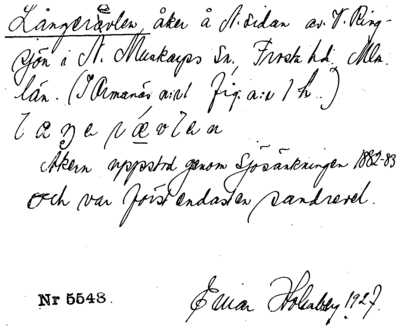 Långerävlen, åker å N. sidan av V. Ring-
sjön i N. Munkarps Sn, Frosta hd, Mlm.
län. (I Ormanäs
Åkern uppstod genom Sjösänkningen 1882-83
och var först endast en sandrevel.
Nr 5548. Einar Holmberg 1927.